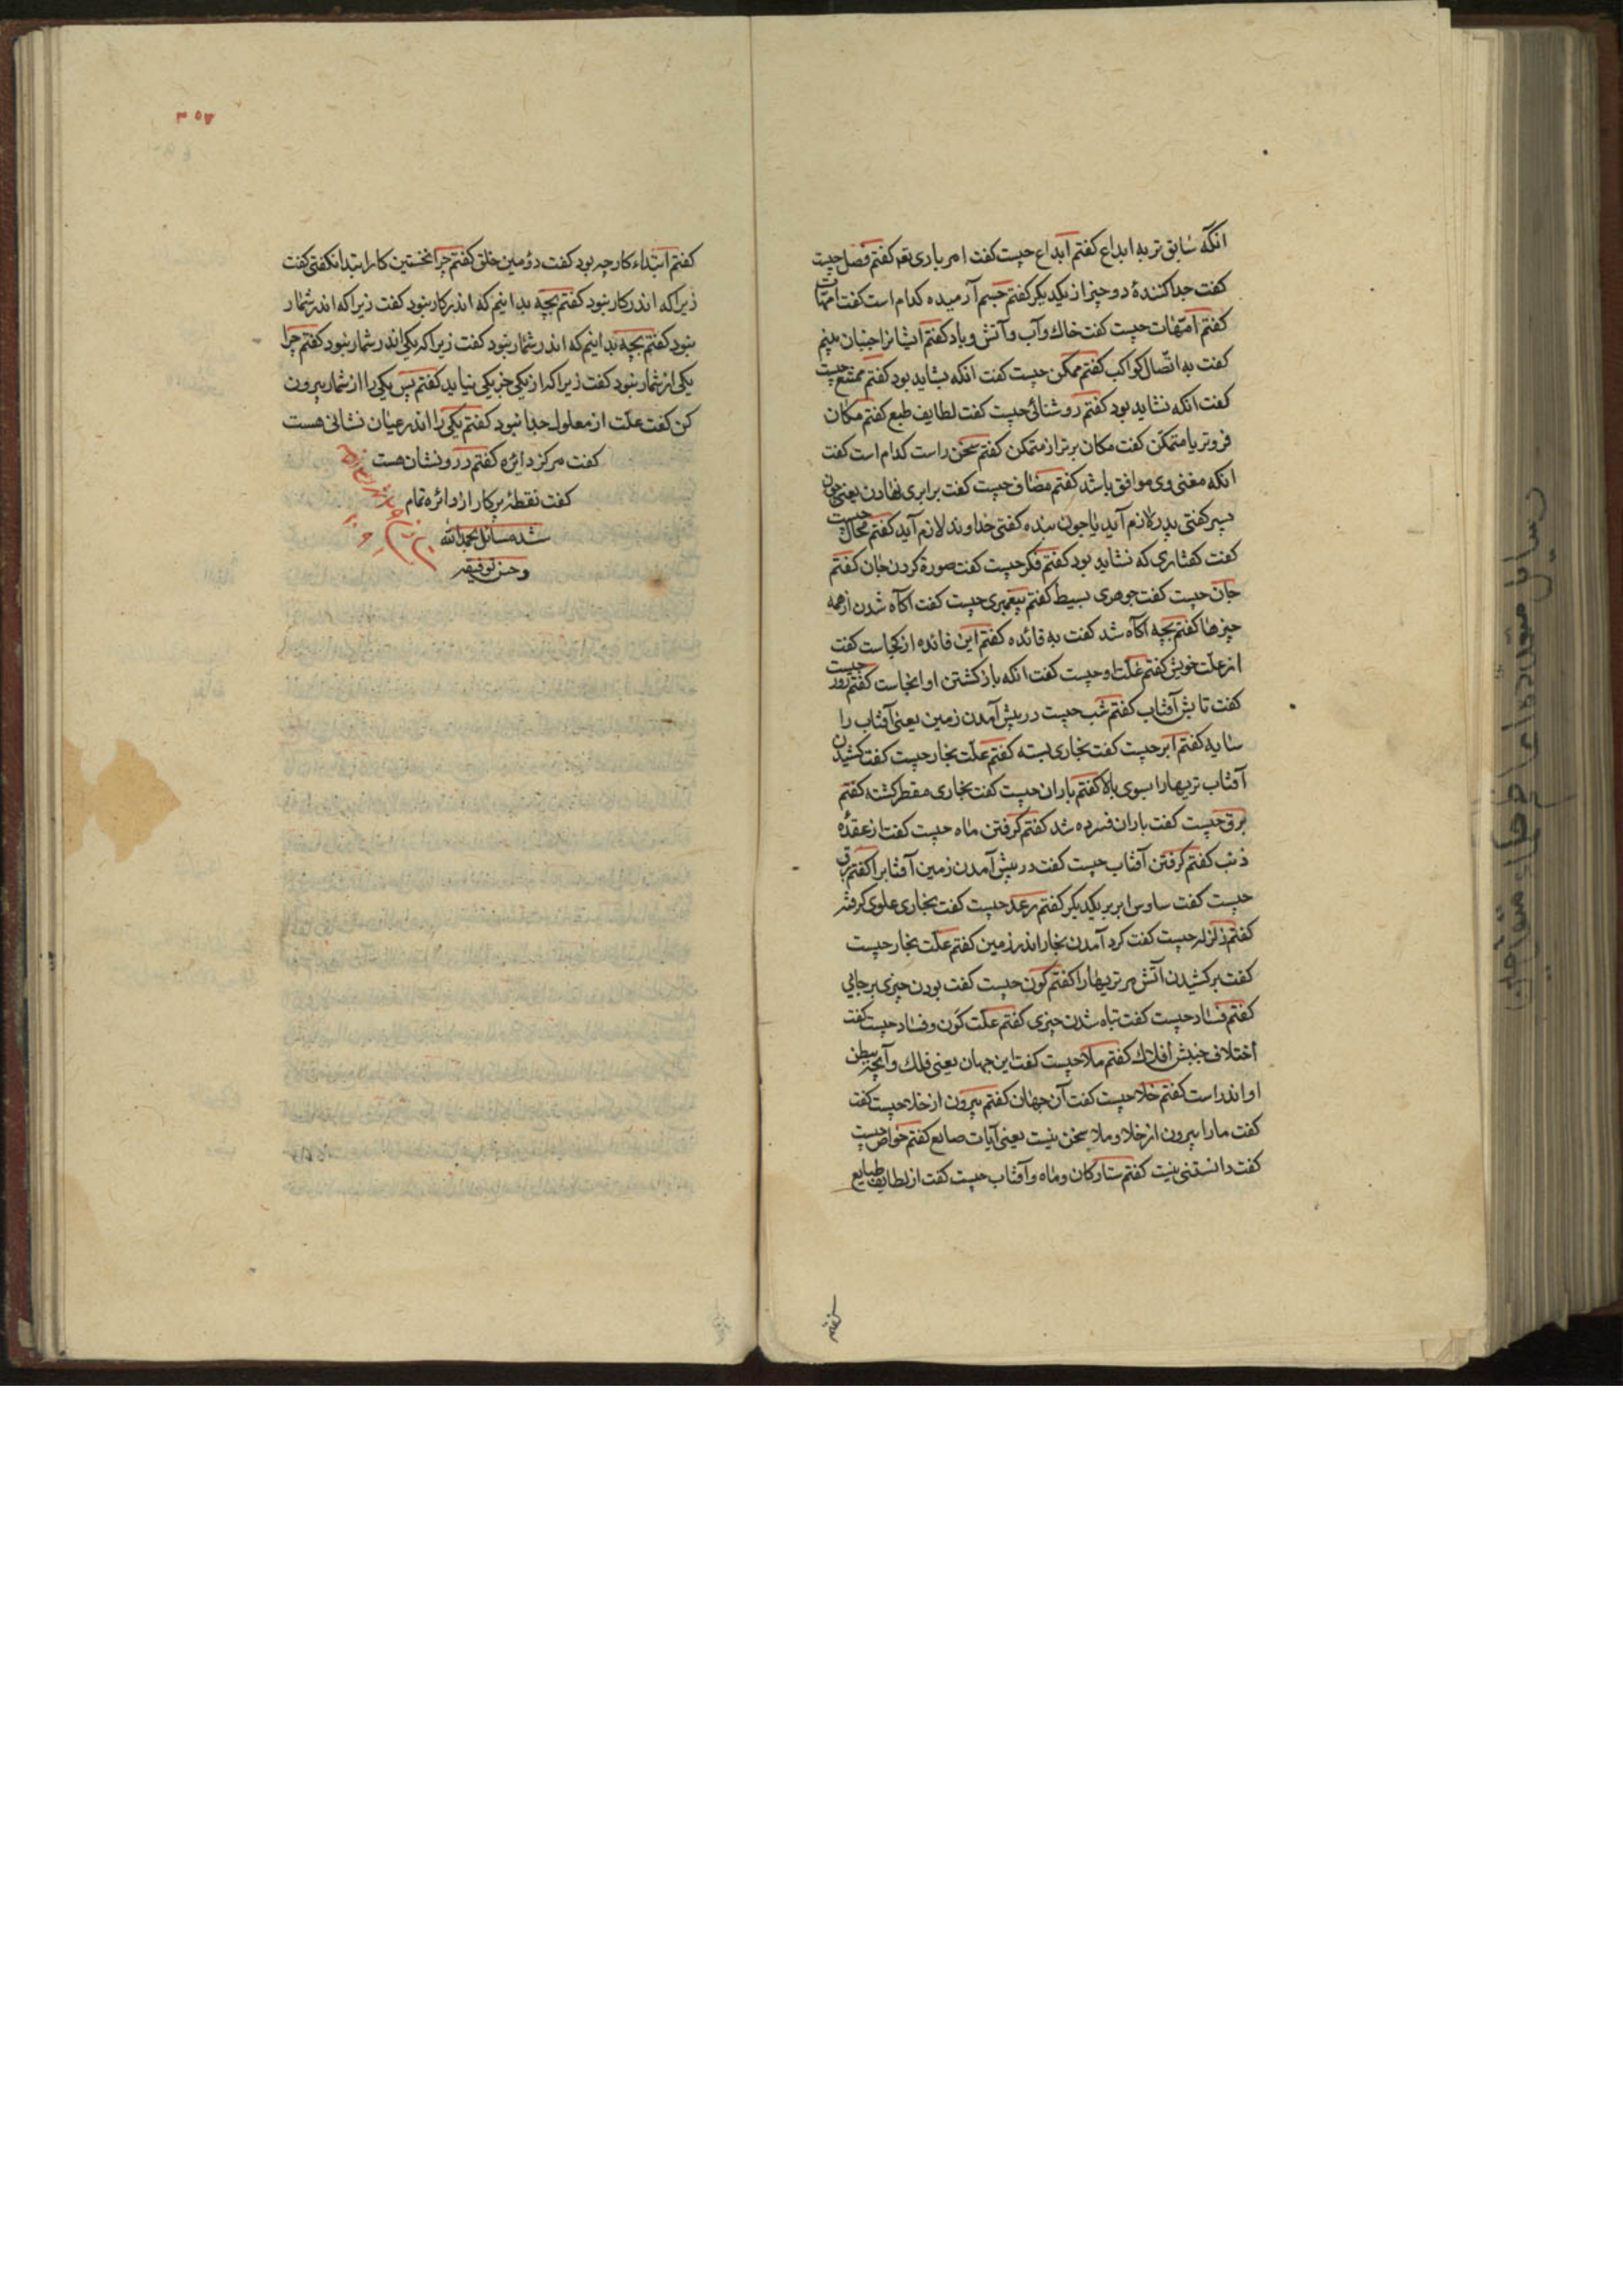 انکه سابق تر به ابداع کفتم ابداع چیست کفت امر باری تعه کفتم فصل چیست
کفت جدا کنندهٔ دو چیز از یکدیکر کفتم جسم آرمیده کدام است کفت امهات
کفتم امّهات چیست کفت خاک و آب و آتش و باد کفتم ایشانرا جنبان بینیم
کفت به اتّصال کواکب کفتم ممکن چیست کفت انکه بشاید بود کفتم ممتنع چیست
کفت انکه نشاید بود کفتم روشنائی چیست کفت لطایف طبع کفتم مکان
فروتر یا متمکّن کفت مکان برتر از متمکن کفتم سخن راست کدام است کفت
انکه معنی وی موافق باشد کفتم مضاف چیست کفت برابری نهادن یعنی چون
پسر کفتی پدر لازم آید یا چون بنده کفتی خداوند لازم آید کفتم محال چیست
کفت کفتاری که نشاید بود کفتم فکر چیست کفت صورة کردن جان کفتم
جان چیست کفت جوهری بسیط کفتم پیغمبری چیست کفت اکاه شدن از همه
چیزها کفتم بچه اکاه شد کفت به فائده کفتم این فائده از کجاست کفت
از علّت خویش کفتم علّت او چیست کفت انکه باز کشتن او انجاست کفتم روز چیست
کفت تابش آفتاب کفتم شب چیست در پیش آمدن زمین یعنی آفتاب را
سایه کفتم ابر چیست کفت بخاری بسته کفتم علّت بخار چیست کفت کشیدن
آفتاب تریهارا بسوی بالا کفتم باران چیست کفت بخاری مقطر کشته کفتم
برق چیست کفت باران فسرده شد کفتم کرفتن ماه چیست کفت از عقدهٔ
ذنب کفتم کرفتن آفتاب چیست کفت در پیش آمدن زمین آفتابرا کفتم برق
چیست کفت ساوس ابر بر یکدیکر کفتم رعد چیست کفت بخاری علوی کرفته
کفتم زلزله چیست کفت کرد آمدن بخار اندر زمین کفتم علّت بخار چیست
کفت بر کشیدن آتش مر تریهارا کفتم کون چیست کفت بودن چیزی بر جائی
کفتم فساد چیست کفت تباه شدن چیزی کفتم علّت کون و فساد چیست کفت
اختلاف جنبش افلاک کفتم ملا چیست کفت این جهان یعنی فلک و آنچه ببطن
او اندر است کفتم خلا چیست کفت آن جهان کفتم بیرون از خلا چیست کفت
کفت مارا بیرون از خلا و ملا سخن نیست یعنی آیات صانع کفتم خواص چیست
کفت دانستنی نیست کفتم ستارکان و ماه و آفتاب چیست کفت از لطایف طبایع
کفتم
۳۵۷
کفتم ابتداء کار چه بود کفت دومین خلق کفتم چرا نخستین کار ابتدا نکفتی کفت
زیرا که اندر کار نبود کفتم بچه بدانیم که اندر کار نبود کفت زیرا که اندر شمار
نبود کفتم بچه بدانیم که اندر شمار نبود کفت زیرا که یکی اندر شمار نبود کفتم چرا
یکی از شمار نبود کفت زیرا که از یکی جز یکی نیاید کفتم پس یکی را از شمار بیرون
کن کفت علّت از معلول جدا نبود کفتم یکی را اندر عیان نشانی هست
کفت مرکز دایره کفتم درو نشان هست
کفت نقطهٔ پرکار از دائره تمام
شد مسائل بحمدالله
و حسن توفیقه